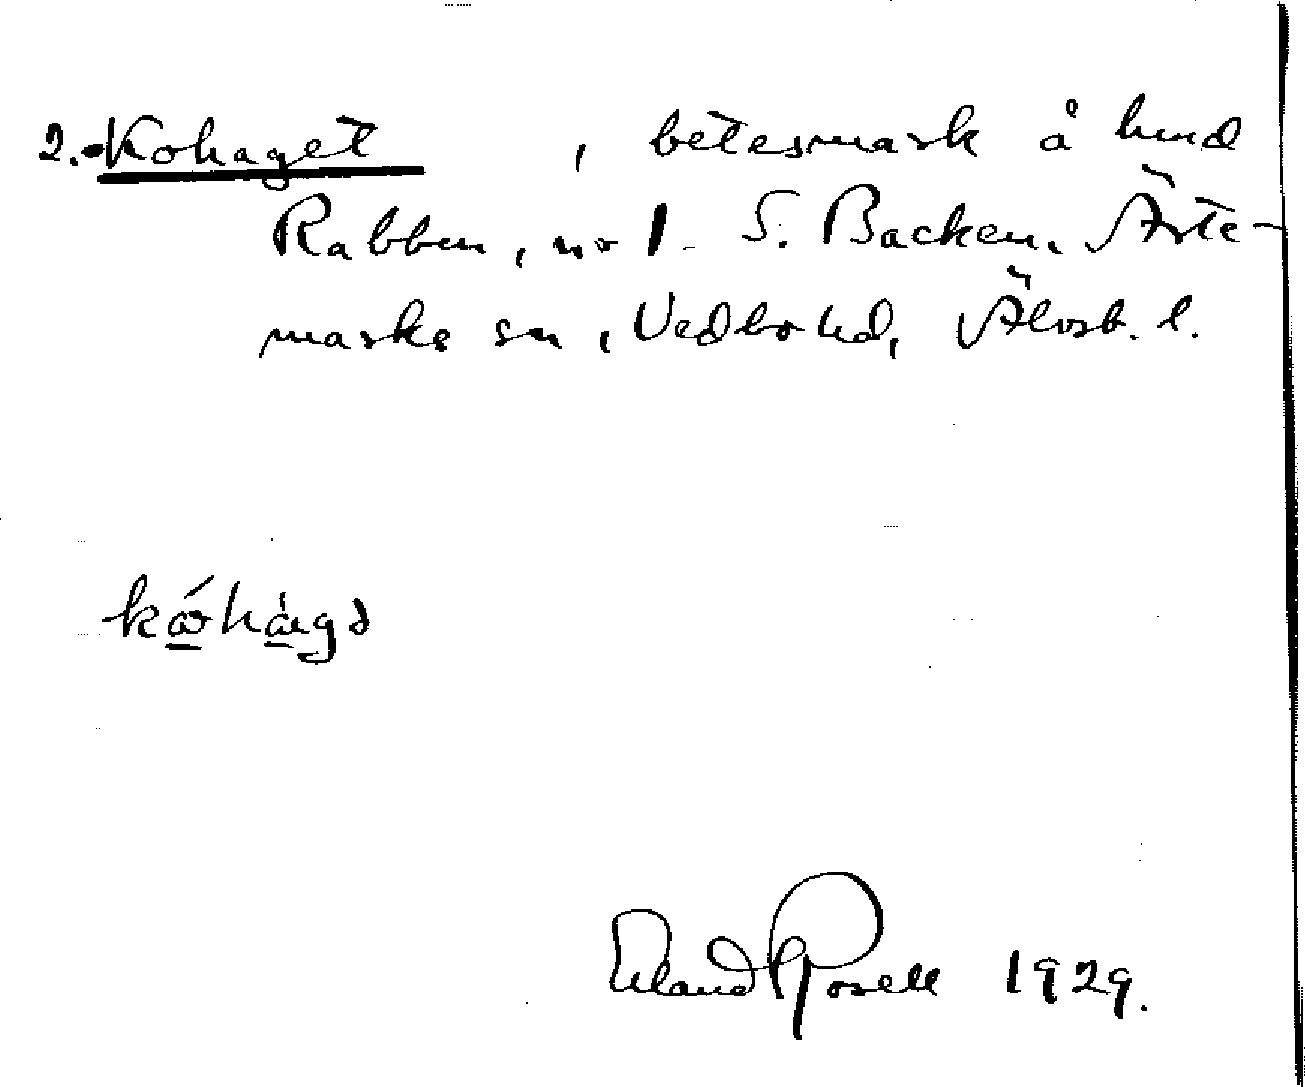 2. Kohaget , betesmark å hmd
Rabben, nr 1. S. Backen, Ärte-
marks sn, Vedbo hd, Älvsb. l.
Erland Rosell 1929.